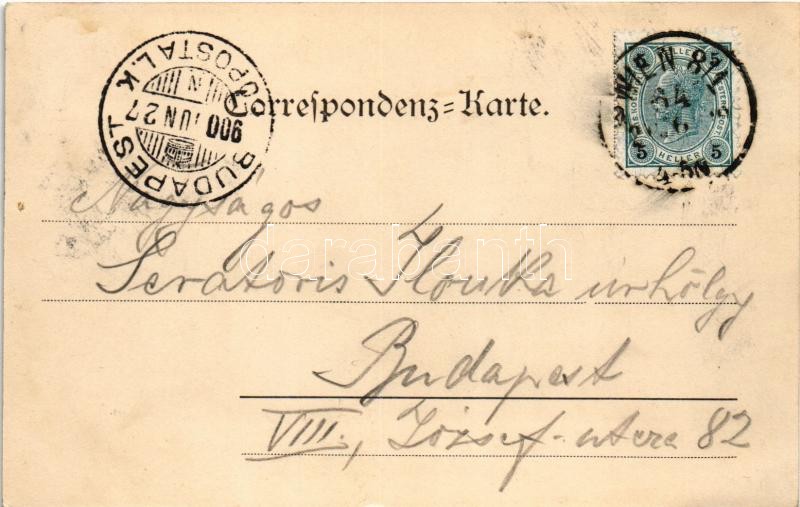 BUDAPEST
FŐPOSTA L.K
900 JUN 27
N
Correspondenz=Karte.
WIEN 8/1
4-5N
5 HELLER 5
Nagyságos
Ilonka úrhölgy
Budapest
VIII., József-utca 82
darabanth